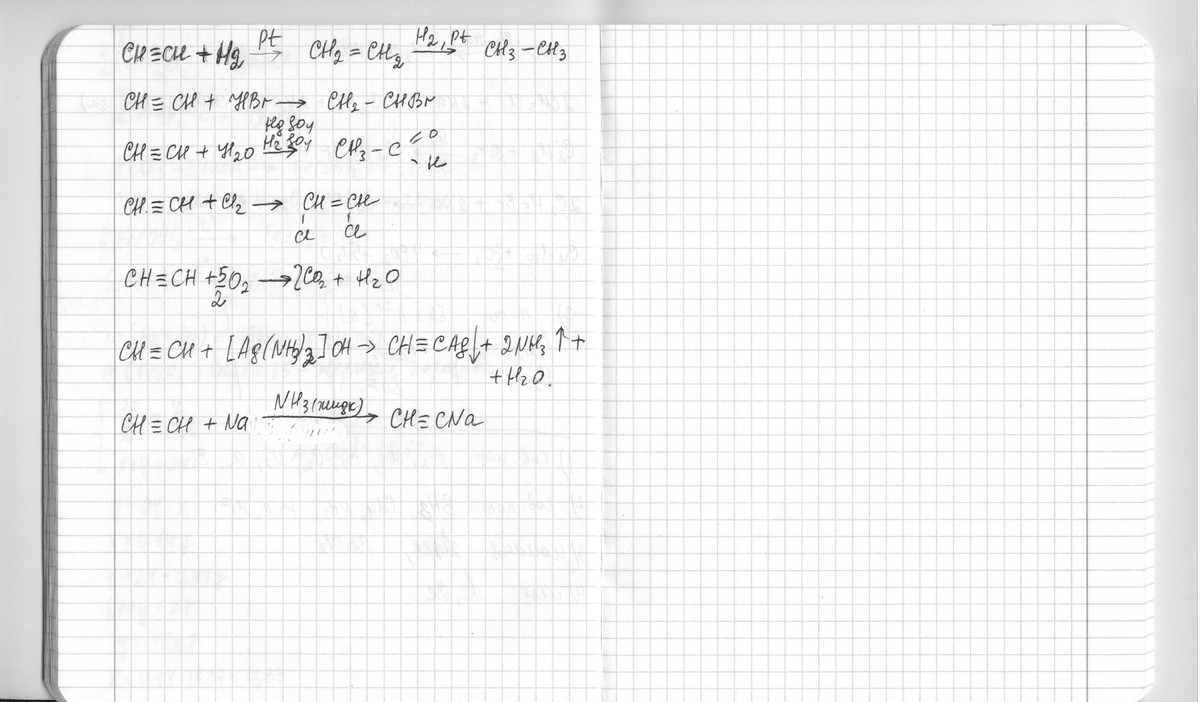 CH≡CH + H₂ Pt→ CH₂ = CH₂ H₂, Pt→ CH₃ – CH₃
CH≡CH + HBr → CH₂ – CHBr
CH≡CH + H₂O HgSO₄ H₂SO₄→ CH₃ – C =O - H
CH≡CH + Cl₂ → CH = CH
Cl Cl
CH≡CH + 5/2 O₂ → 2CO₂ + H₂O
CH≡CH + [Ag(NH₃)₂]OH → CH≡CAg↓ + 2NH₃↑ +
+ H₂O.
CH≡CH + Na NH₃(жидк)→ CH≡CNa